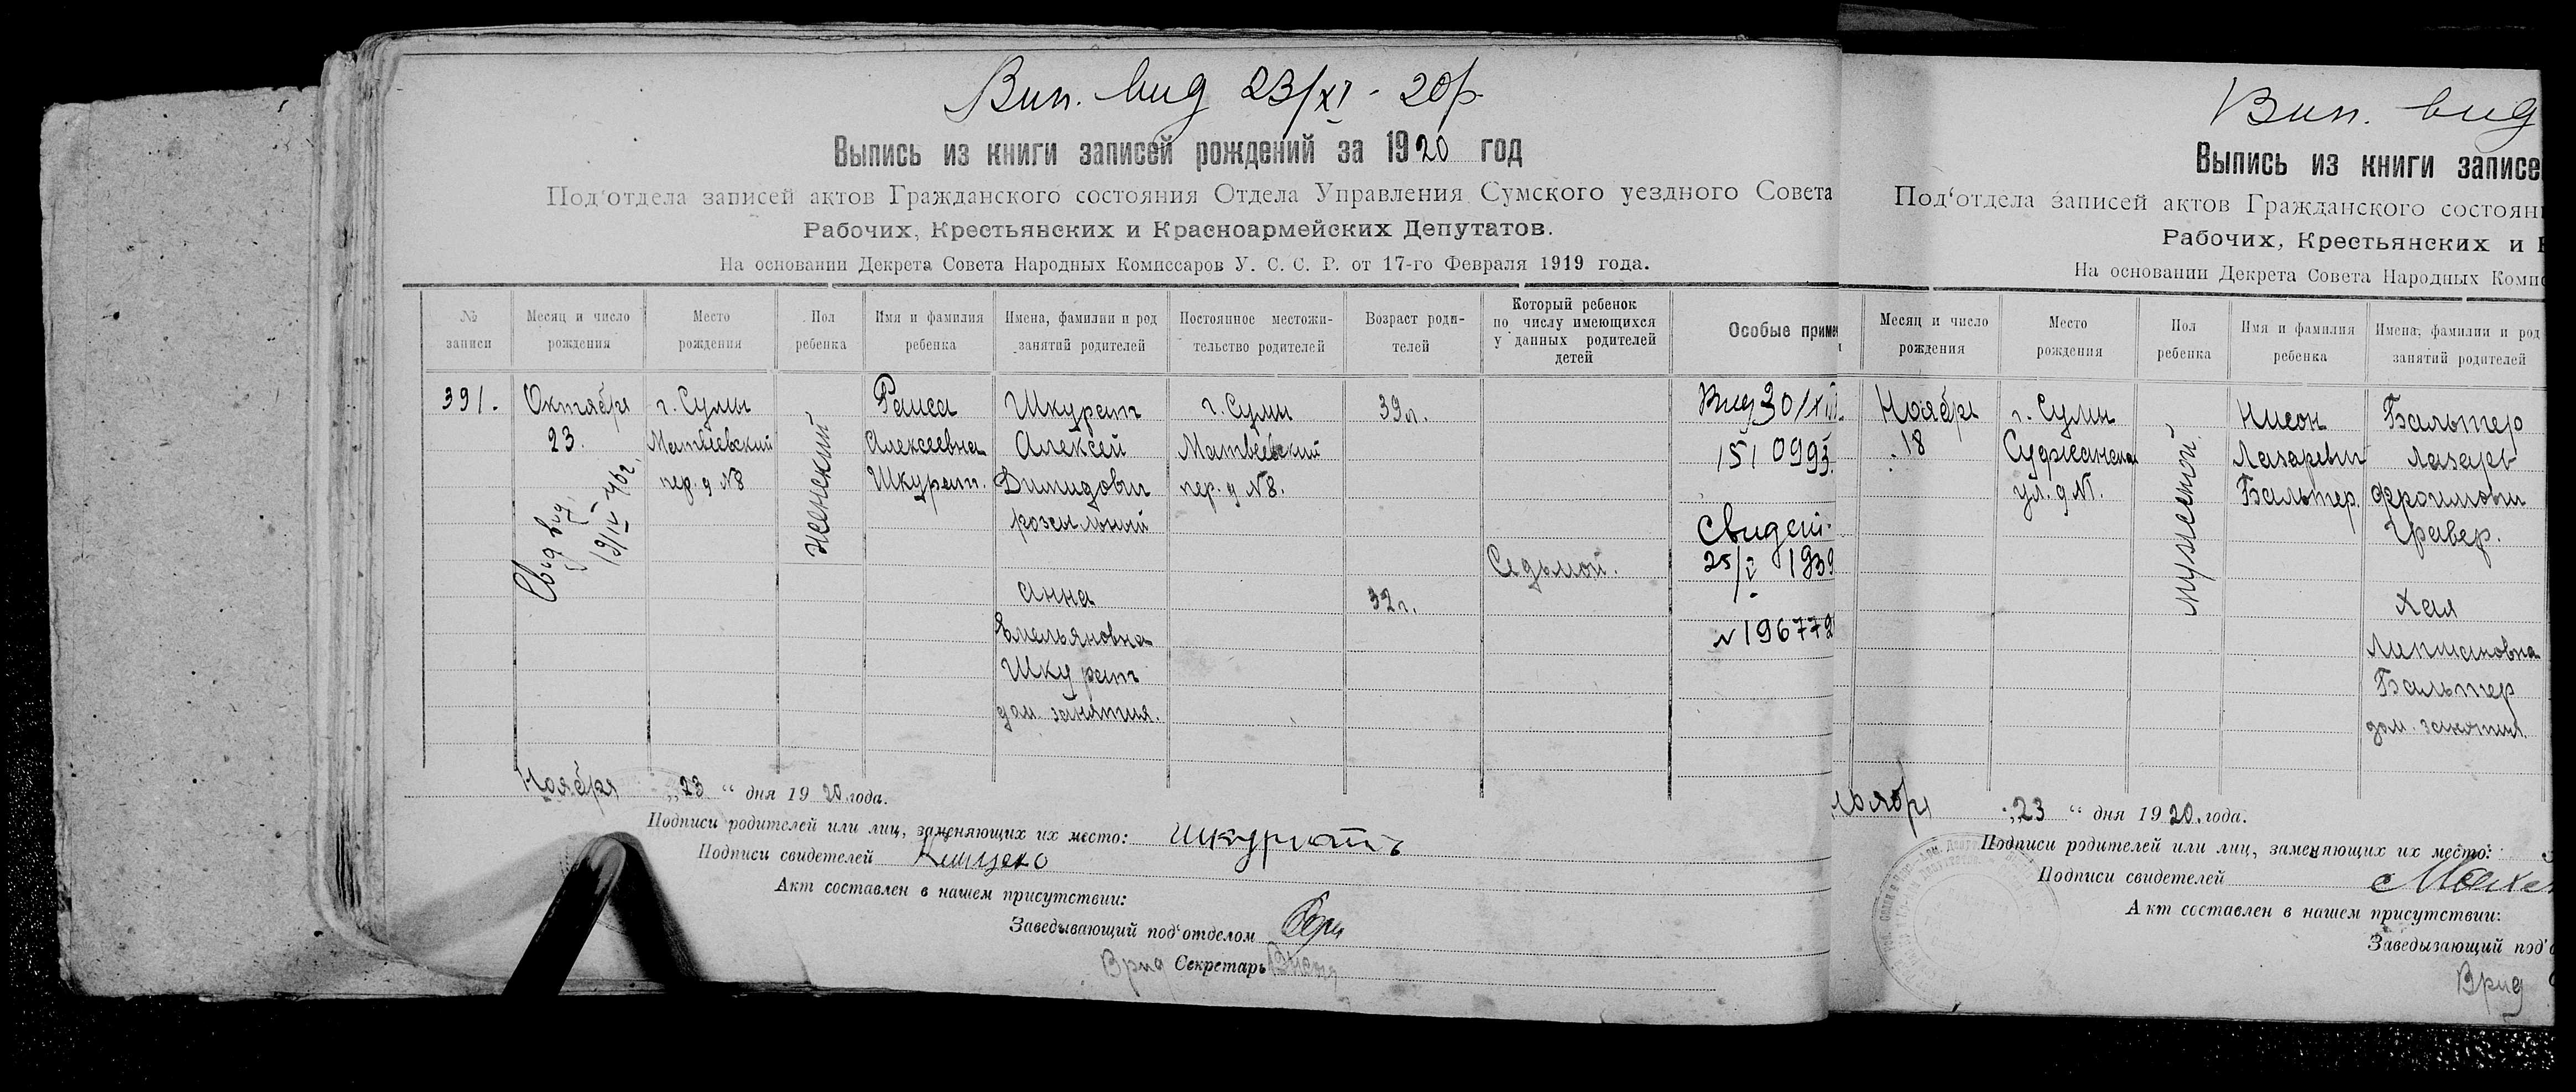 Вип. вид 23/XI - 20р
Выпись из книги записей рождений за 1920 год
Под'отдела записей актов Гражданского состояния Отдела Управления Сумского уездного Совета
Рабочих, Крестьянских и Красноармейских Депутатов.
На основании Декрета Совета Народных Комиссаров У. С. С. Р. от 17-го Февраля 1919 года.
№ записи
Месяц и число рождения
Место рождения
Пол ребенка
Имя и фамилия ребенка
Имена, фамилии и род занятий родителей
Постоянное местожительство родителей
Возраст родителей
Который ребенок по числу имеющихся у данных родителей детей
Особые приме
391.
Октября
23.
Свид вид.
19/IV 46г.
г. Сумы
Матвеевский
пер. д N8
женский
Раиса
Алексеевна
Шкурат.
Шкурат
Алексей
Димидович
розсыльный
Анна
Емельяновна
Шкурат
дом. занятия.
г. Сумы
Матвеевский
пер. д N8.
39 л.
32 г.
Седьмой.
151 0993
Свидет.
25/V 1939
N 196779
Ноября „23“ дня 1920 года.
Подписи родителей или лиц, заменяющих их место: Шкуратъ
Подписи свидетелей
Акт составлен в нашем присутствии:
Заведывающий под'отделом
Врид Секретарь
Вип. вид
Выпись из книги записе
Под'отдела записей актов Гражданского состоян
Рабочих, Крестьянских и К
На основании Декрета Совета Народных Комис
Месяц и число рождения
Место рождения
Пол ребенка
Имя и фамилия ребенка
Имена, фамилии и род занятий родителей
Ноября
18
г. Сумы
Суджанская
ул. д N1.
мужеской
Нисон
Лазаревич
Бальтер.
Бальтер
Лазарь
Фроимович
Гравер.
Хая
Липмановна
Бальтер
дом. занятия.
ноября „23“ дня 1920. года.
Подписи родителей или лиц, заменяющих их место:
Подписи свидетелей
Акт составлен в нашем присутствии:
Заведывающий под'о
Врид